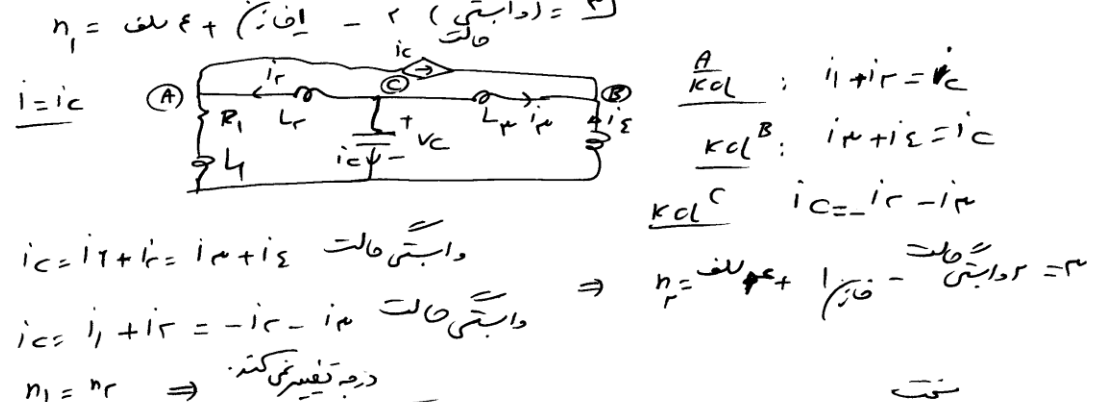 n₁ = ۴ سلف + ۱ خازن - ۲ (وابستگی حالت) = ۳
i = ic
A
B
C
ic
i۲
L۲
L۳
i۳
i۴
R₁
L₁
+
Vc
-
ic
KCL A : i₁ + i۲ = ic
KCL B : i۳ + i۴ = ic
KCL C ic = -i۲ - i۳
ic = i۱ + i۲ = i۳ + i۴ وابستگی حالت
ic = i₁ + i۲ = -i۲ - i۳ وابستگی حالت
⇒ n۲ = ۴ سلف + ۱ خازن - ۲ وابستگی حالت = ۳
n₁ = n۲ ⇒ درجه تغییر نمی کند.
سخت